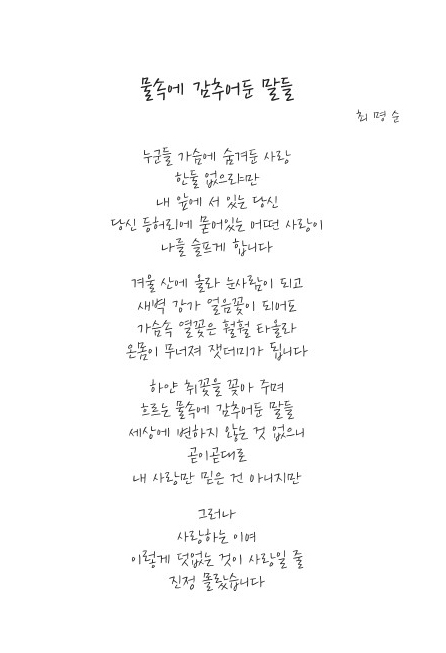 물속에 감추어둔 말들
최명순
누군들 가슴에 숨겨둔 사랑
한둘 없으랴만
내 앞에 서 있는 당신
당신 등허리에 묻어있는 어떤 사랑이
나를 슬프게 합니다
겨울 산에 올라 눈사람이 되고
새벽 강가 얼음꽃이 되어도
가슴속 열꽃은 훨훨 타올라
온몸이 무너져 잿더미가 됩니다
하얀 취꽃을 꽂아 주며
흐르는 물속에 감추어둔 말들
세상에 변하지 않는 것 없으니
곧이곧대로
내 사랑만 믿은 건 아니지만
그러나
사랑하는 이여
이렇게 덧없는 것이 사랑일 줄
진정 몰랐습니다